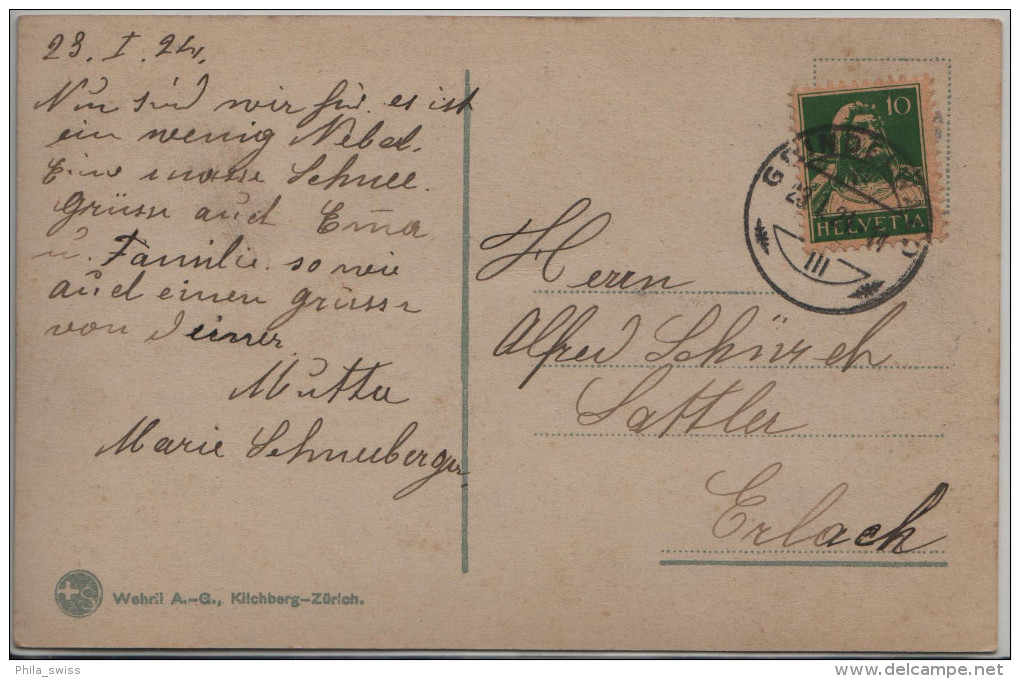 23. I. 24.
Nun sind wir hir. es ist
ein wenig Nebel.
Schnee.
Grüsse auch Ema
u. Familie. sowie
auch einen grüsse
von deiner
Mutter
Marie Schneeberger
10
HELVETIA
GRINDELWALD
III
Herrn
Alfred Schürch
Sattler
Erlach
Wehrli A.-G., Kilchberg-Zürich.
Phila_swiss
delcampe.net